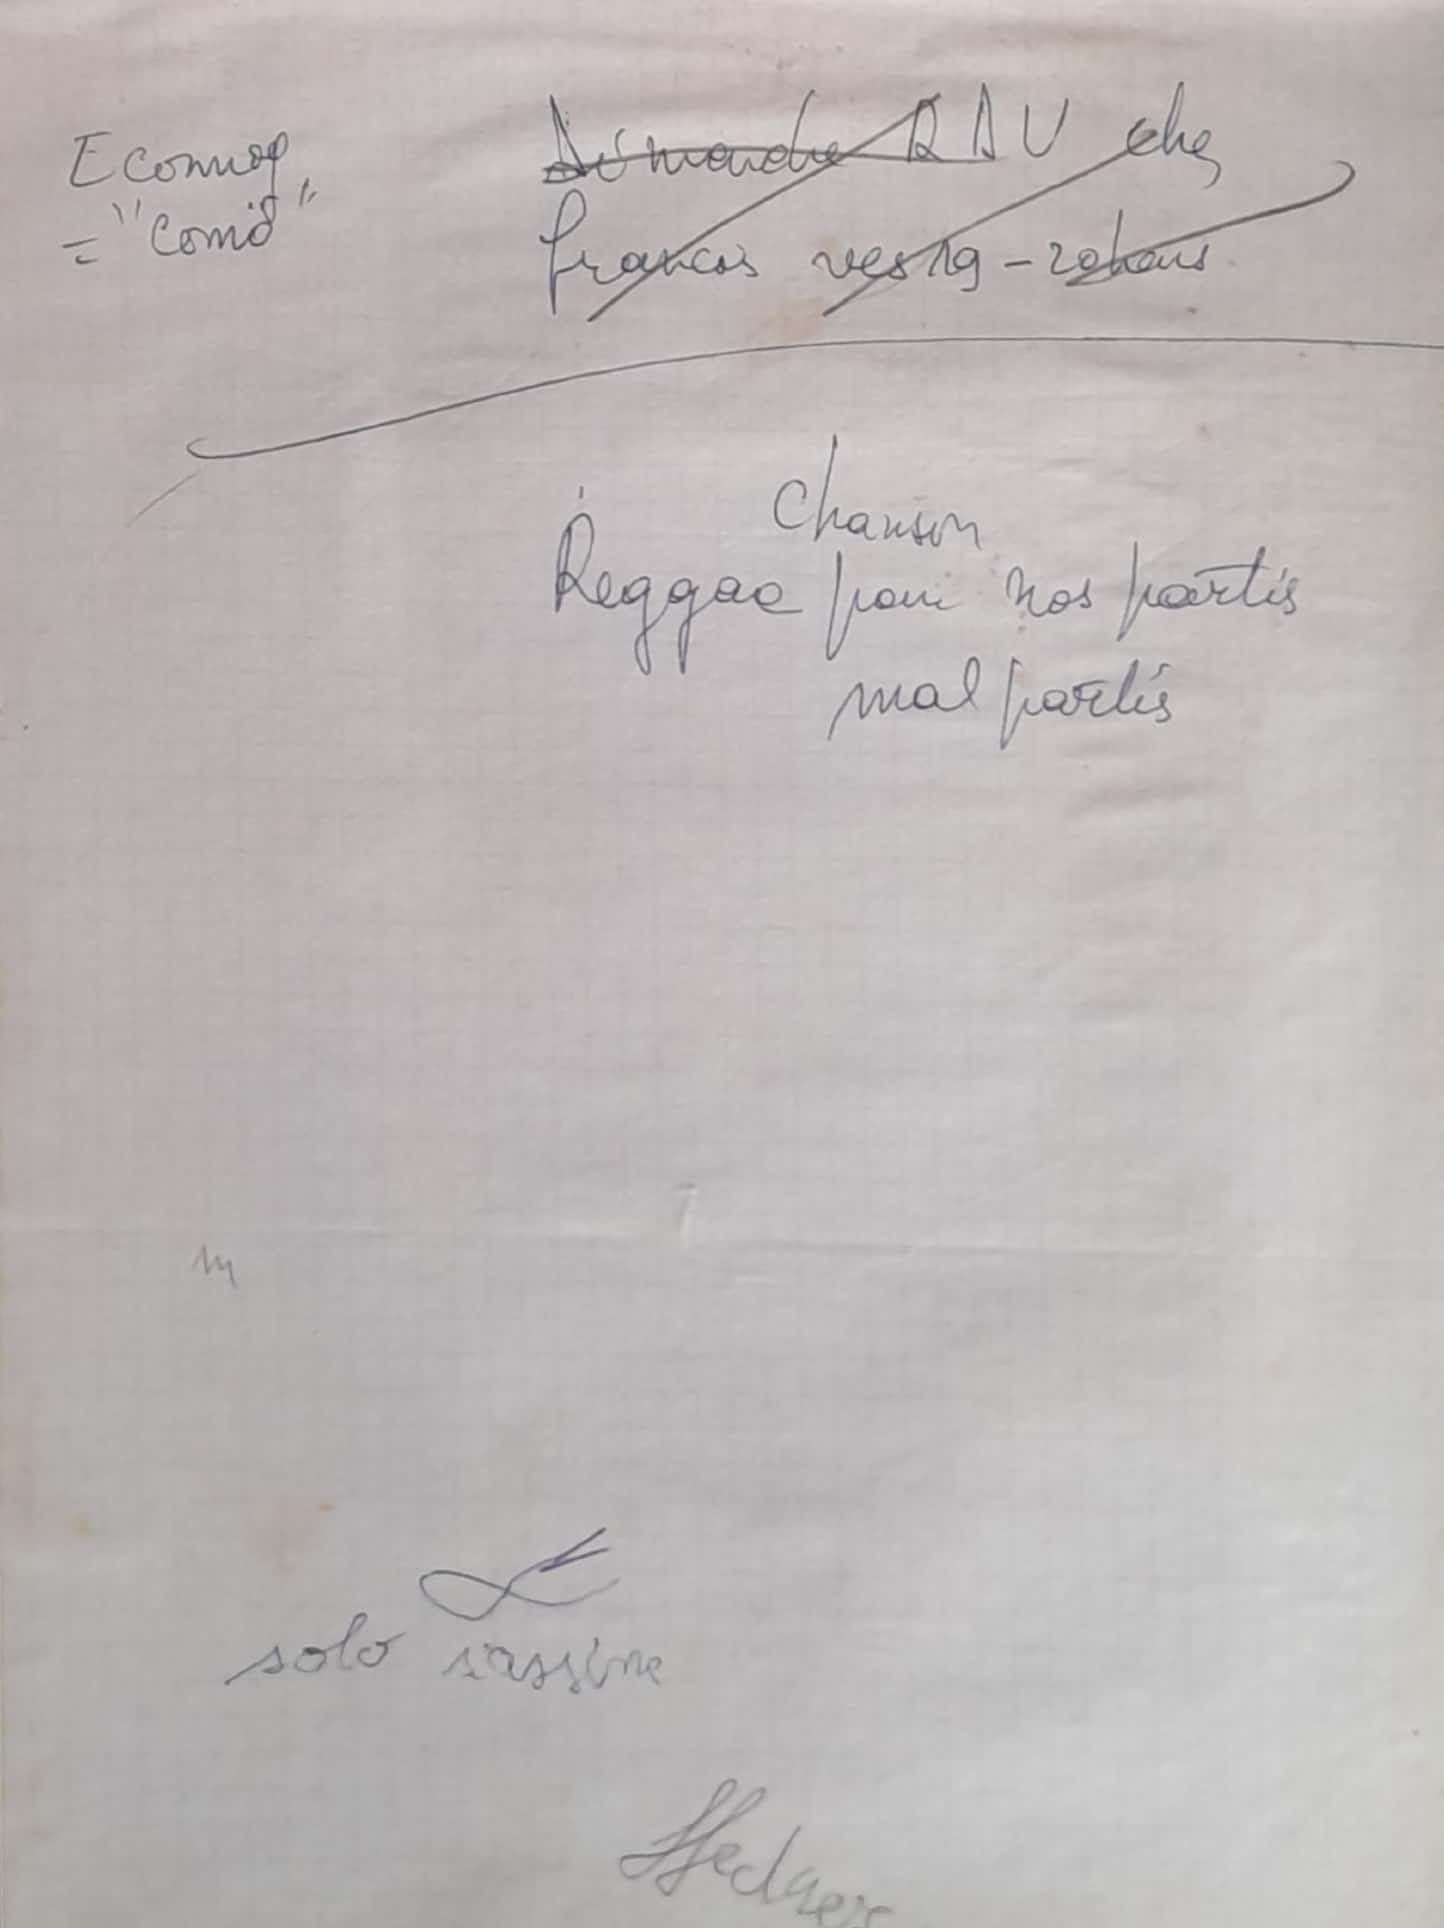 Ecomog
= "Comid"
Dimanche RDV chez
Francis vers 19 - 20 heures
Chanson
Reggae pour nos partis
mal partis
solo sassine